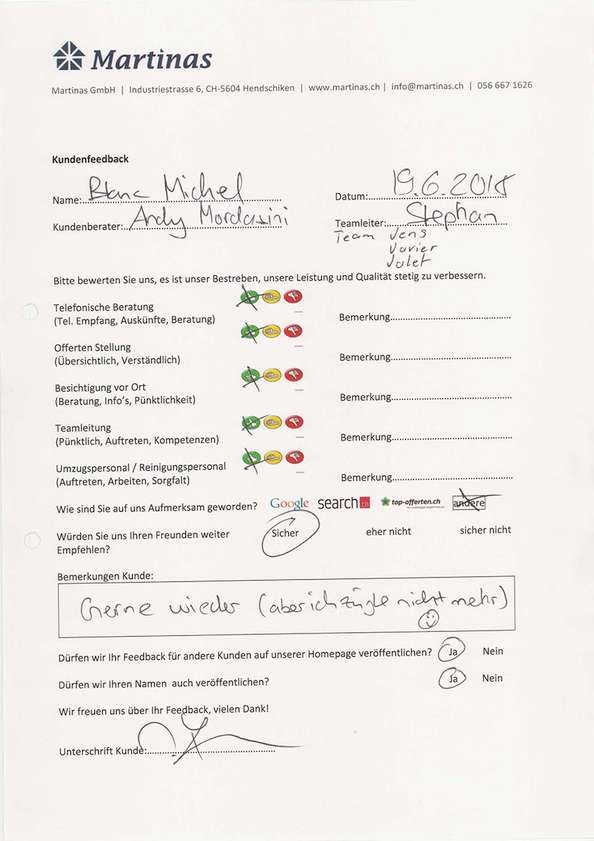 Martinas
Martinas GmbH | Industriestrasse 6, CH-5604 Hendschiken | www.martinas.ch | info@martinas.ch | 056 667 1626
Kundenfeedback
Name: Blanc Michel
Datum: 19.6.2018
Kundenberater: Andy Mordasini
Teamleiter: Stephan
Team Jens
Xavier
Julet
Bitte bewerten Sie uns, es ist unser Bestreben, unsere Leistung und Qualität stetig zu verbessern.
Telefonische Beratung
(Tel. Empfang, Auskünfte, Beratung)
Bemerkung
Offerten Stellung
(Übersichtlich, Verständlich)
Bemerkung
Besichtigung vor Ort
(Beratung, Info's, Pünktlichkeit)
Bemerkung
Teamleitung
(Pünktlich, Auftreten, Kompetenzen)
Bemerkung
Umzugspersonal / Reinigungspersonal
(Auftreten, Arbeiten, Sorgfalt)
Bemerkung
Wie sind Sie auf uns Aufmerksam geworden? Google search.ch top-offerten.ch andere
Würden Sie uns Ihren Freunden weiter
Empfehlen?
Sicher eher nicht sicher nicht
Bemerkungen Kunde:
Gerne wieder (aber ich zügle nicht mehr)
Dürfen wir Ihr Feedback für andere Kunden auf unserer Homepage veröffentlichen? Ja Nein
Dürfen wir Ihren Namen auch veröffentlichen? Ja Nein
Wir freuen uns über Ihr Feedback, vielen Dank!
Unterschrift Kunde: